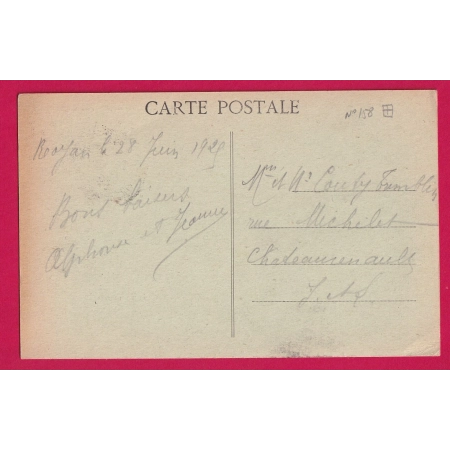 CARTE POSTALE
N° 158
Royan le 28 Juin 1929
Bons baisers
Alphonse et Jeanne
Mr et Me
rue Michelet
Chateaurenault
I. et L.